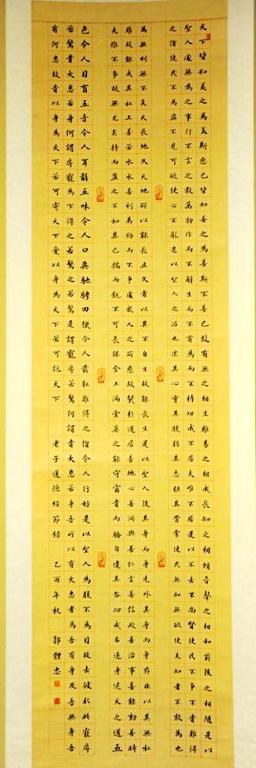 天下皆知美之為美斯惡已皆知善之為善斯不善已故有無之相生難易之相成長短之相傾音聲之相和前後之相隨是以
聖人處無為之事行不言之教萬物作而不辭生而不有為而不恃功成不居夫唯不居是以不去不尚賢使民不爭不貴難得
之貨使民不為盜不見可欲使心不亂是以聖人之治也虛其心實其腹弱其志強其骨常使民無知無欲使夫知者不敢為也
為無為則無不治天長地久天地所以能長且久者以其不自生故能長生是以聖人後其身而身先外其身而身存非以其無私
邪故能成其私上善若水水善利萬物而不爭處眾人之所惡故幾於道居善地心善淵與善仁言善信政善治事善能動善時
夫唯不爭故無尤持而盈之不如其已揣而銳不可長保金玉滿堂莫之能守富貴而驕自遺其咎功成名遂身退天之道五
色令人目盲五音令人耳聾五味令人口爽馳騁田獵令人發狂難得之貨令人行妨是以聖人為腹不為目故去彼取此寵辱
若驚貴大患若身何謂寵辱若驚寵為下得之若驚失之若驚是謂寵辱若驚何謂貴大患若身吾所以有大患者為吾有身及吾無身吾
有何患故貴以身為天下若可寄天下愛以身為天下若可託天下 老子道德經節錄 乙酉年秋 郭體忠